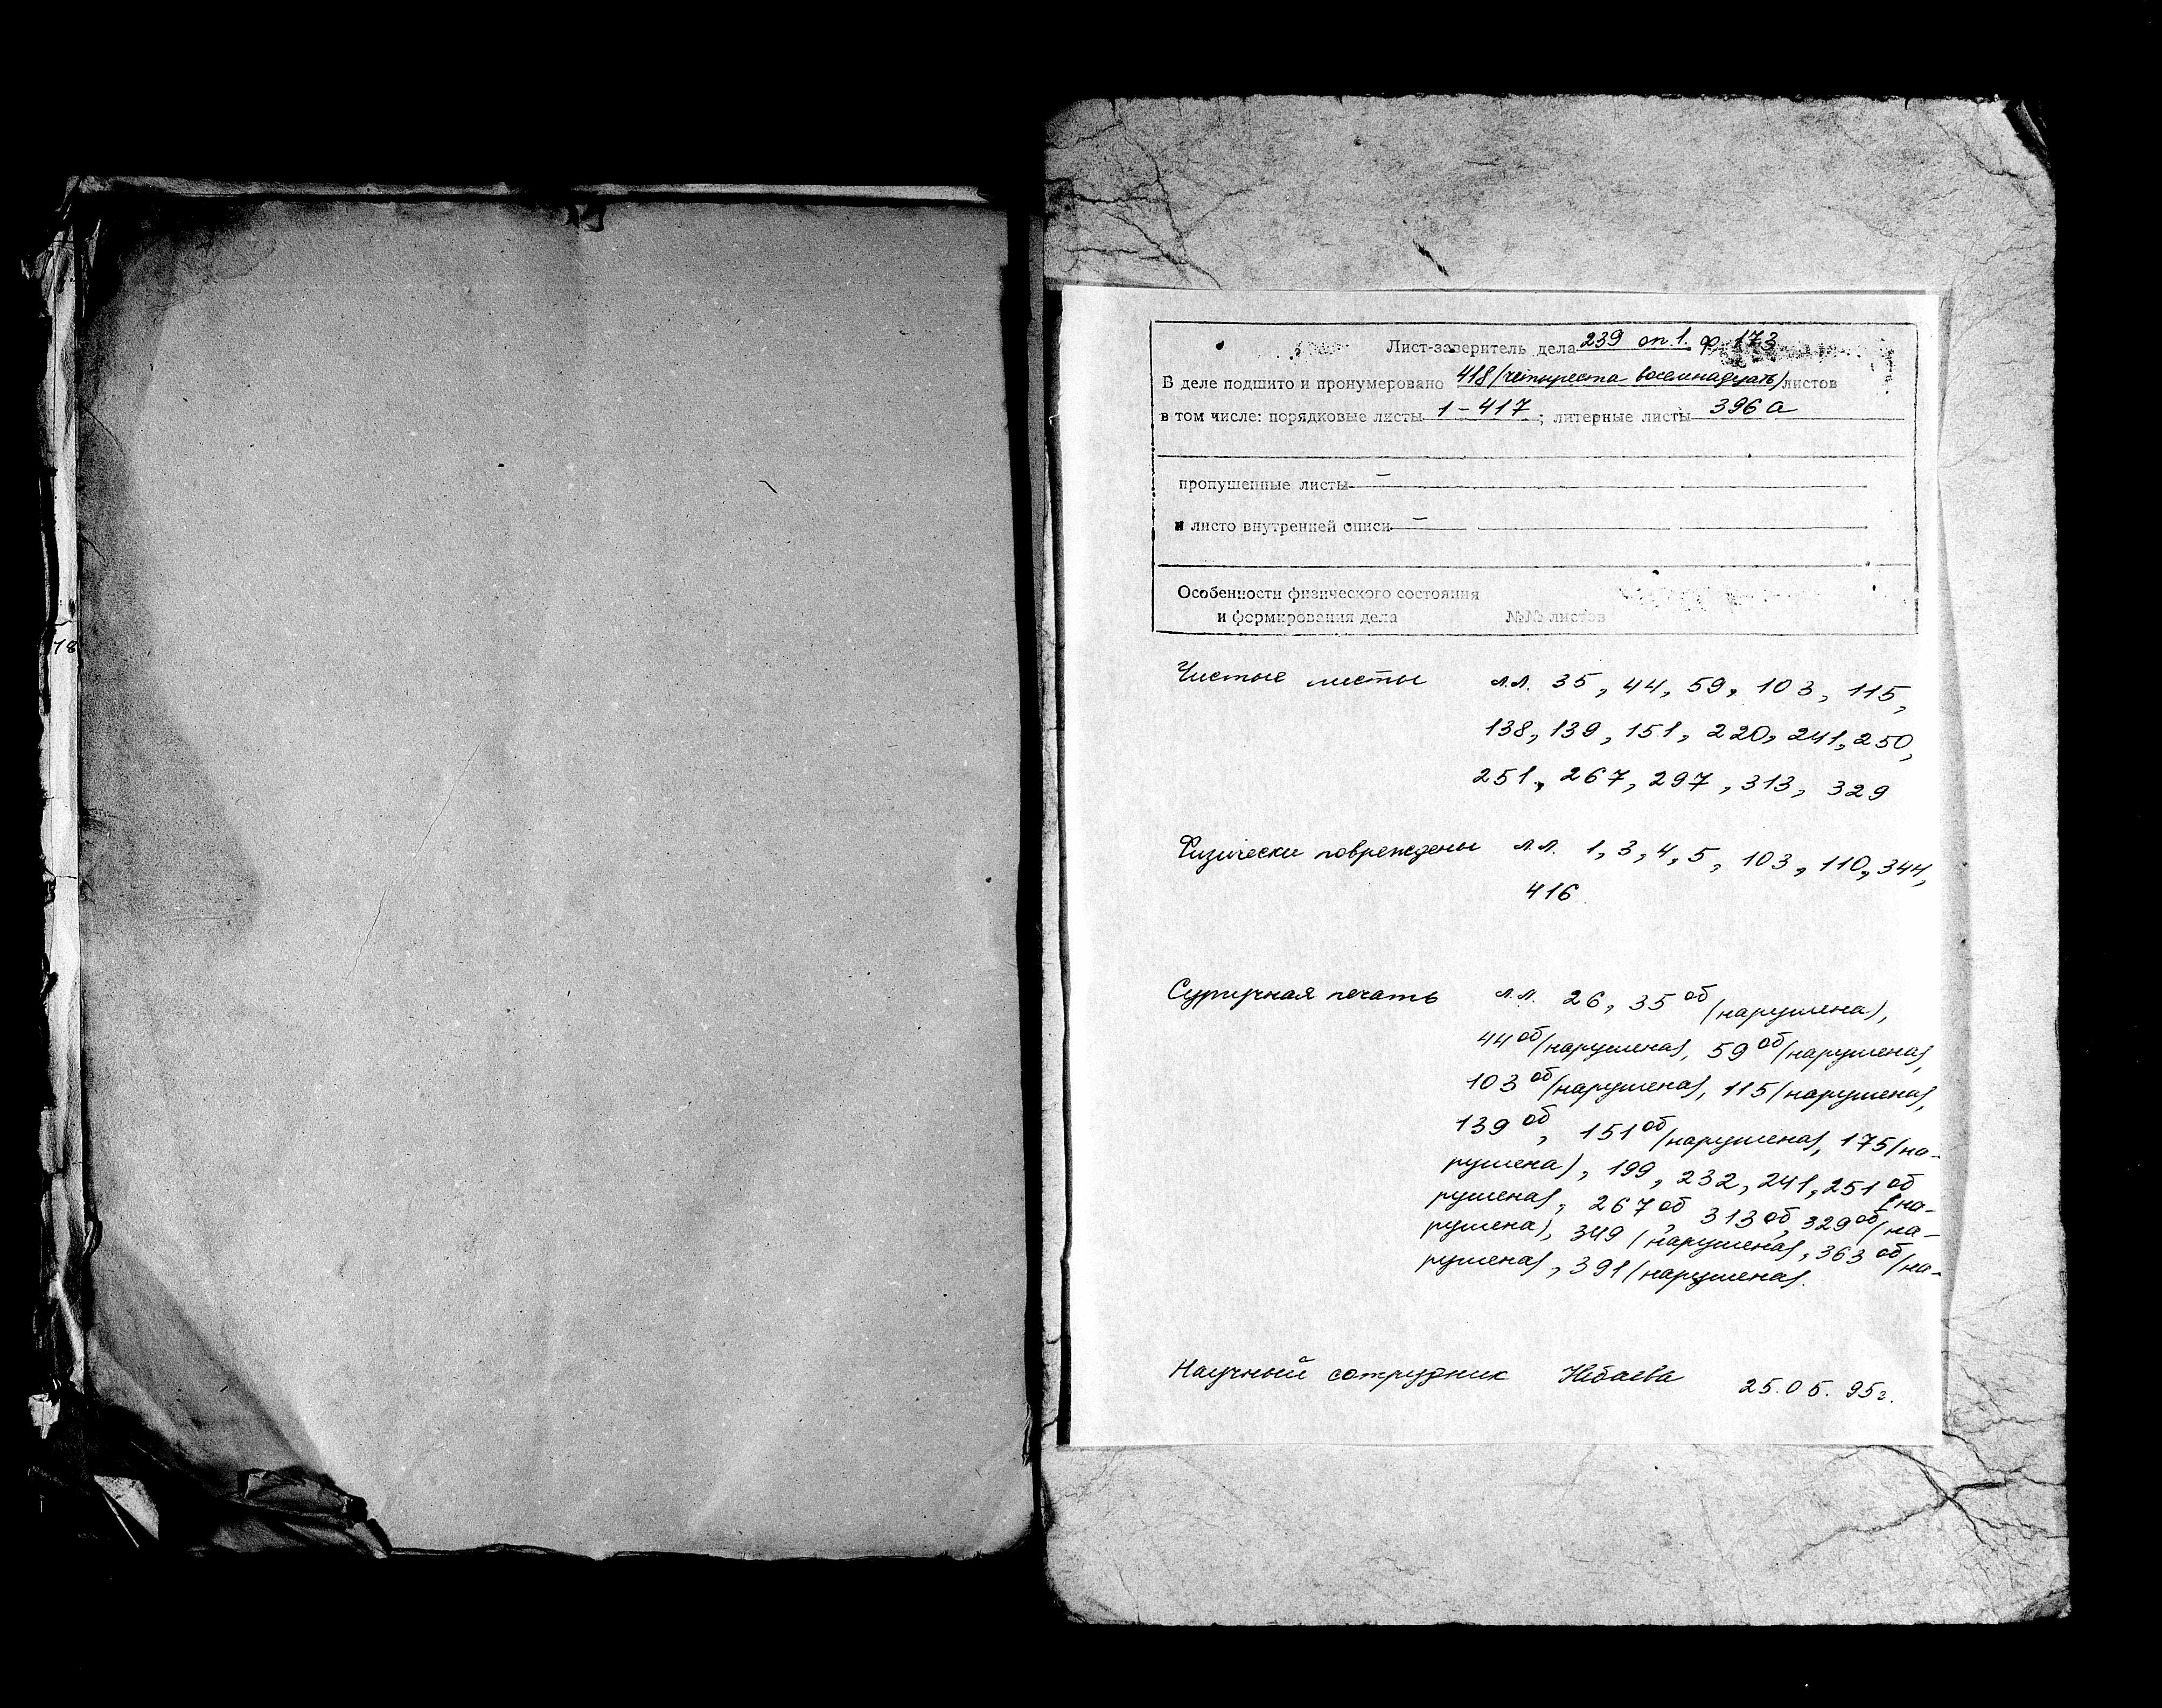 78
Лист-заверитель дела 239 оп.1. ф. 173
В деле подшито и пронумеровано 418 (четыреста восемнадцать) листов
в том числе: порядковые листы 1-417; литерные листы 396а
пропущенные листы –
и листо внутренней описи –
Особенности физического состояния
и формирования дела №№ листов
Чистые листы л.л. 35, 44, 59, 103, 115,
138, 139, 151, 220, 241, 250,
251, 267, 297, 313, 329
Физически повреждены л.л. 1, 3, 4, 5, 103, 110, 344,
416
Сургучная печать л.л. 26, 35 об (нарушена),
44 об (нарушена), 59 об (нарушена),
103 об (нарушена), 115 (нарушена),
139 об, 151 об (нарушена), 175 (на-
рушена), 199, 232, 241, 251 об (на-
рушена), 267 об, 313 об, 329 об (на-
рушена), 349 (нарушена), 363 об (на-
рушена), 391 (нарушена).
Научный сотрудник 25.05.95г.